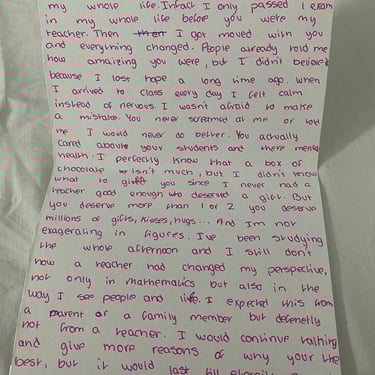 my whole life. Infact I only passed 1 exam
in my whole life before you were my
teacher. Then I got moved with you
and everything changed. People already told me
how amaizing you were, but I didn't believe
because I lost hope a long time ago. When
I arrived to class every day I felt calm
instead of nervous. I wasn't afraid to make
a mistake. You never screamed at me or told
me I would never do better. You actually
cared aboute your students and there mental
health. I perfectly know that a box of
chocolate isn't much, but I didn't know
what to gift you since I never had a
teacher good enough who deserved a gift. But
you deserve more than 1 or 2 you deserve
millions of gifts, kisses, hugs... And Im not
exagerating in figures. I've been studying
the whole afternoon and I still don't
how a teacher had changed my perspective,
not only in mathematics but also in the
way I see people and life. I expected this from
a parent or a family member but defenetly
not from a teacher. I would continue talking
and give more reasons of why your the
best, but it would last till